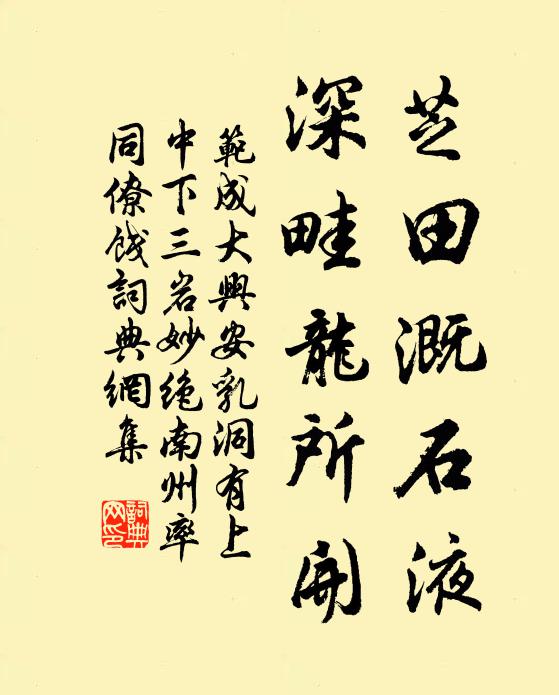 芝田溉石液
深畦龍所開
範成大興安乳洞有上
中下三岩妙絶南州率
同僚餞詞典網集
詞典網印